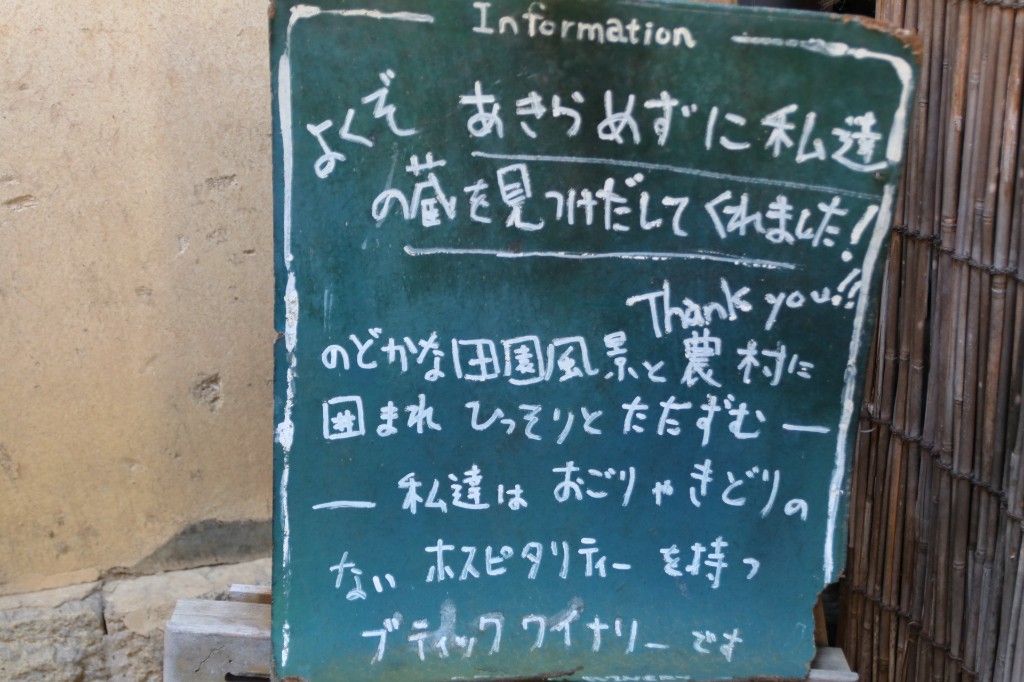 Information
よくぞ あきらめずに私達
の蔵を見つけだしてくれました!
Thank you!!
のどかな田園風景と農村に
囲まれ ひっそりとたたずむ ー
ー 私達は おごりやきどりの
ない ホスピタリティーを持つ
ブティックワイナリーです